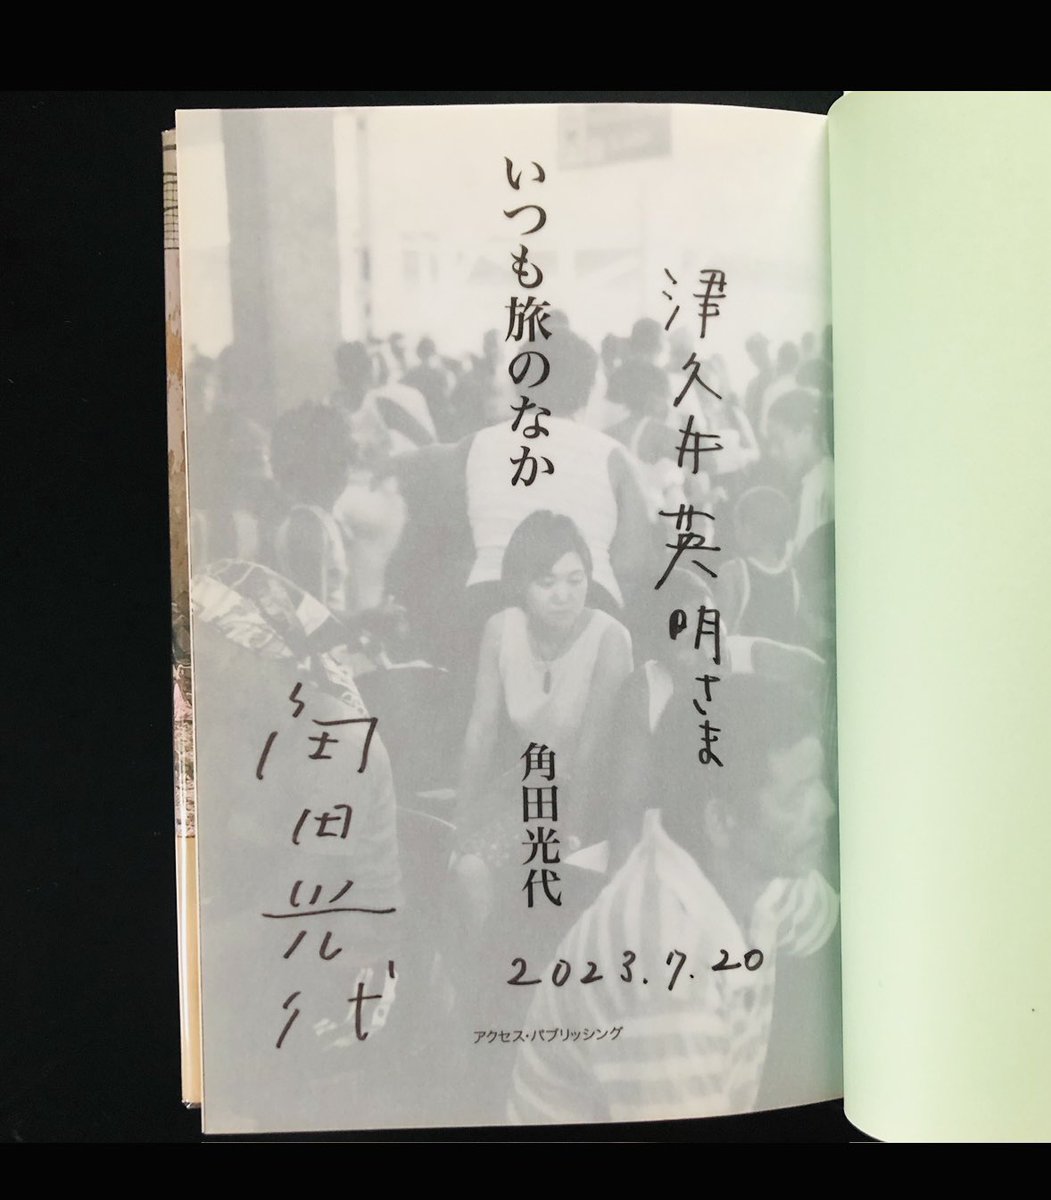 津久井英明さま
いつも旅のなか
角田光代
角田光代
2023.7.20
アクセス・パブリッシング